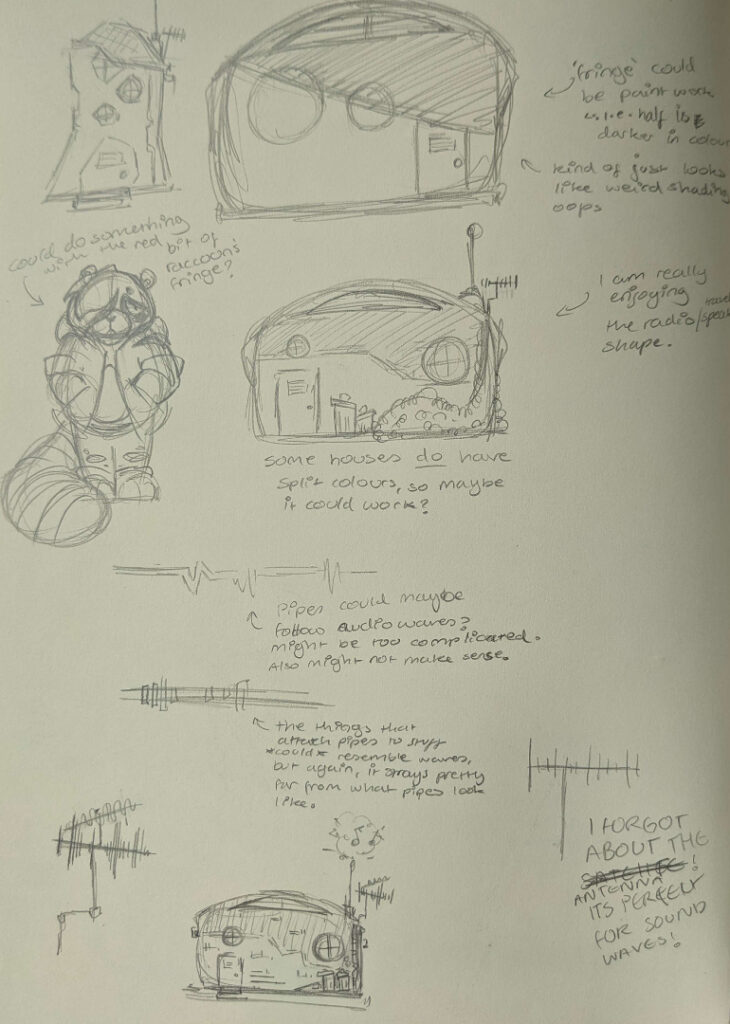 'fringe' could
be paint work
i.e. half is
darker in colour
kind of just looks
like weird shading
oops
could do something
with the red bit of
raccoon's
fringe?
I am really
enjoying
the radio/
shape.
some houses do have
split colours, so maybe
it could work?
pipes could maybe
follow audio waves?
might be too complicated.
Also might not make sense.
the things that
attach pipes to stuff
*could* resemble waves,
but again, it strays pretty
far from what pipes look
like.
I FORGOT
ABOUT THE
SATELITE!
ANTENNA
ITS PERFECT
FOR SOUND
WAVES!